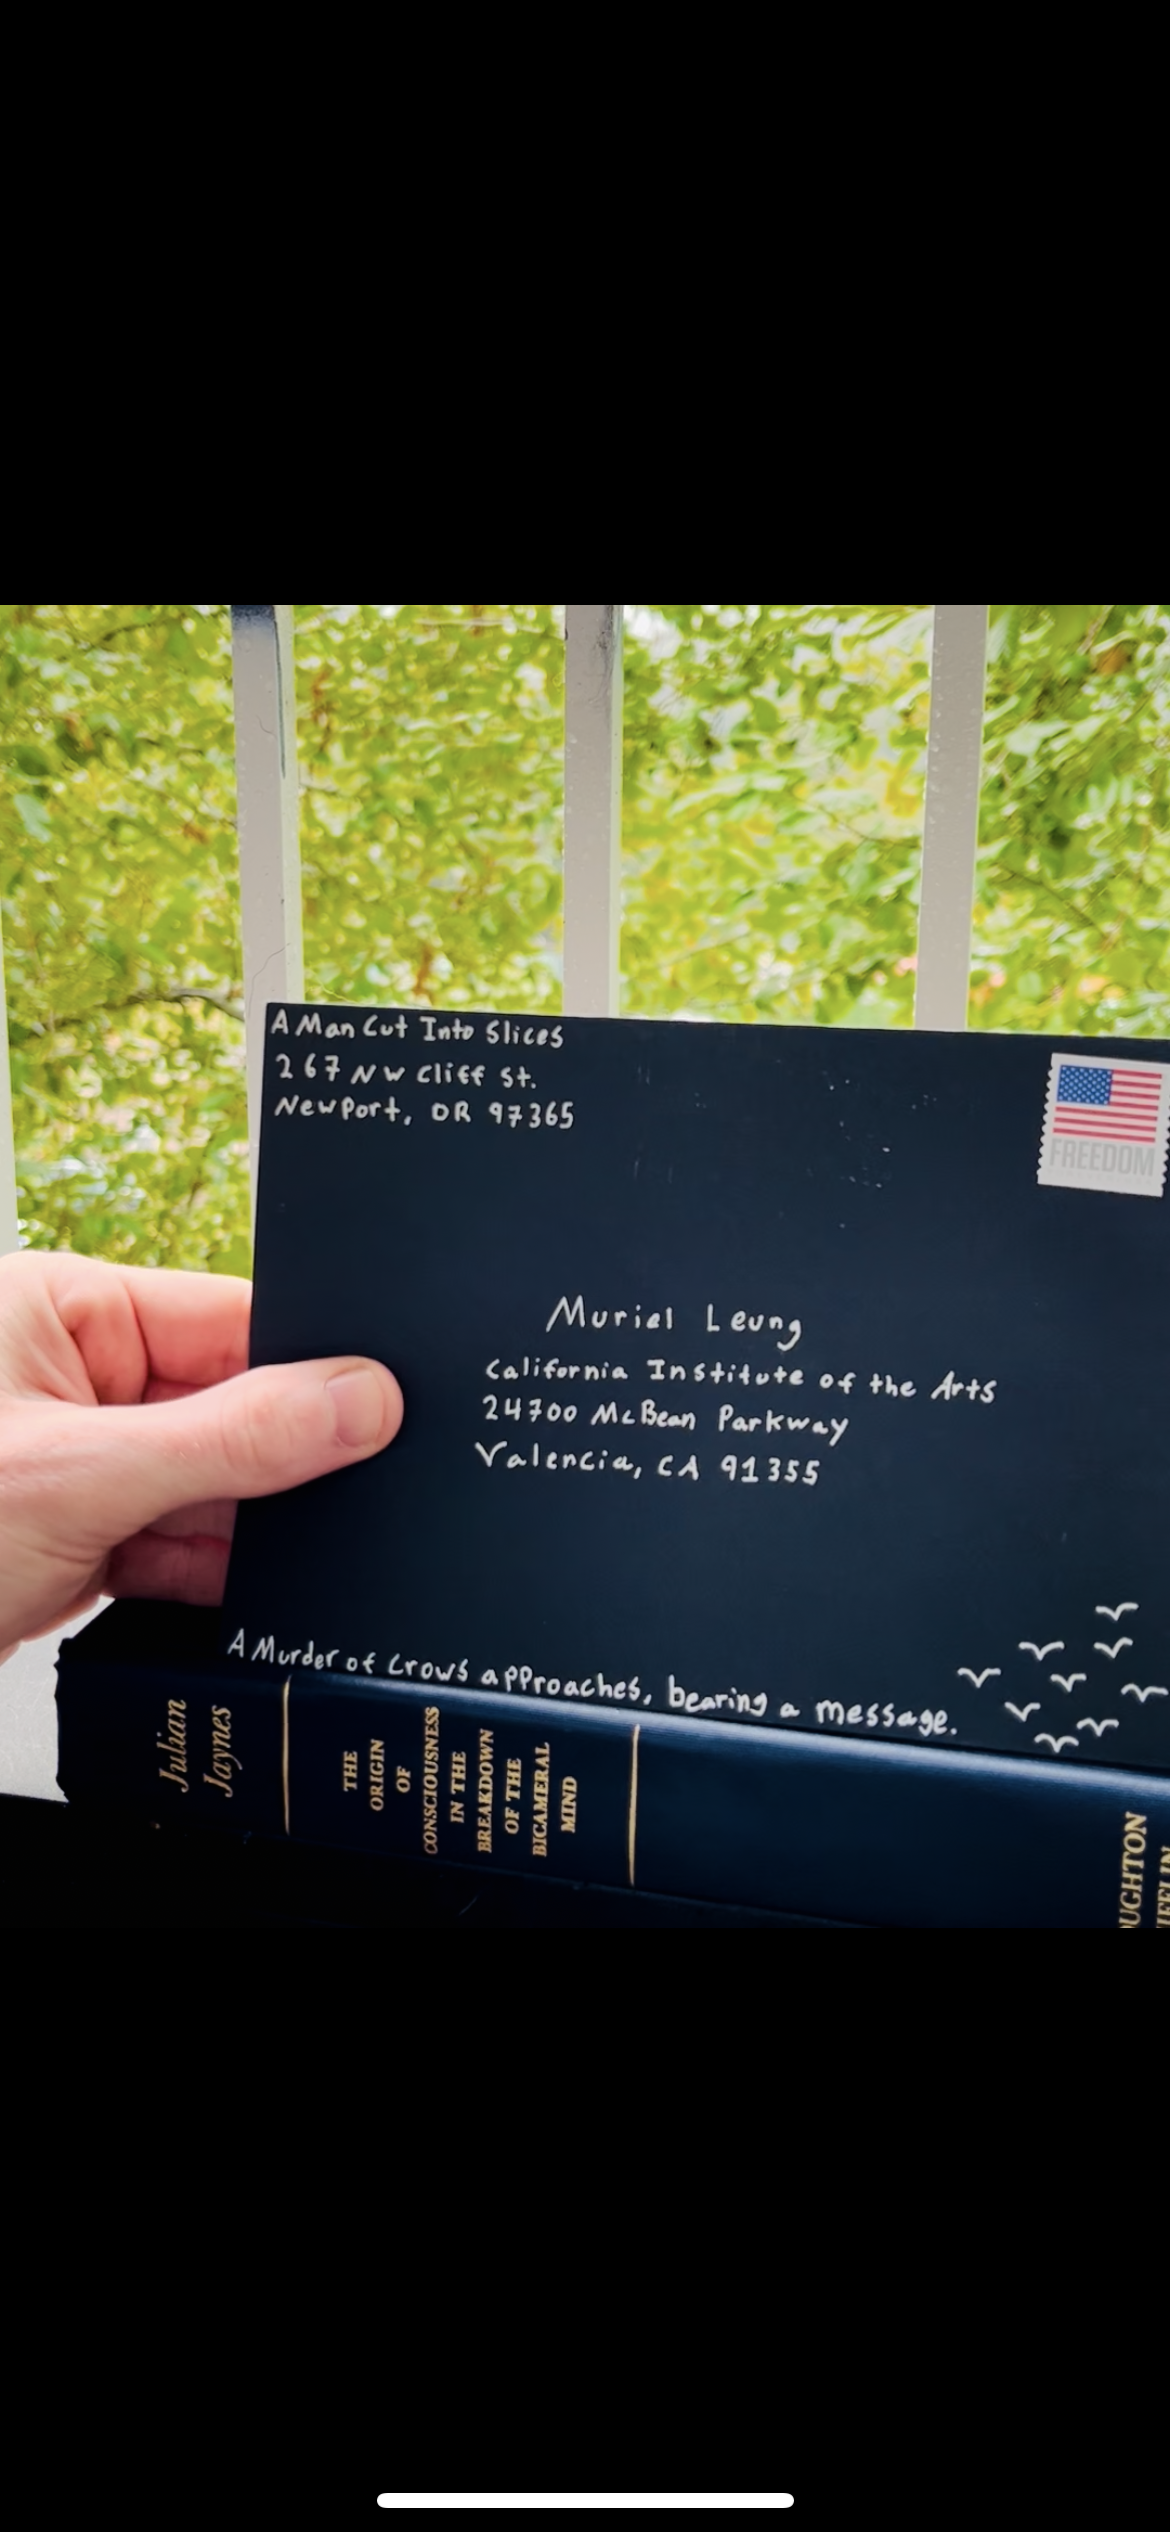 A Man Cut Into Slices
267 NW Cliff St.
Newport, OR 97365
FREEDOM
Muriel Leung
California Institute of the Arts
24700 McBean Parkway
Valencia, CA 91355
A Murder of Crows approaches, bearing a message.
Julian
Jaynes
THE
ORIGIN
OF
CONSCIOUSNESS
IN THE
BREAKDOWN
OF THE
BICAMERAL
MIND